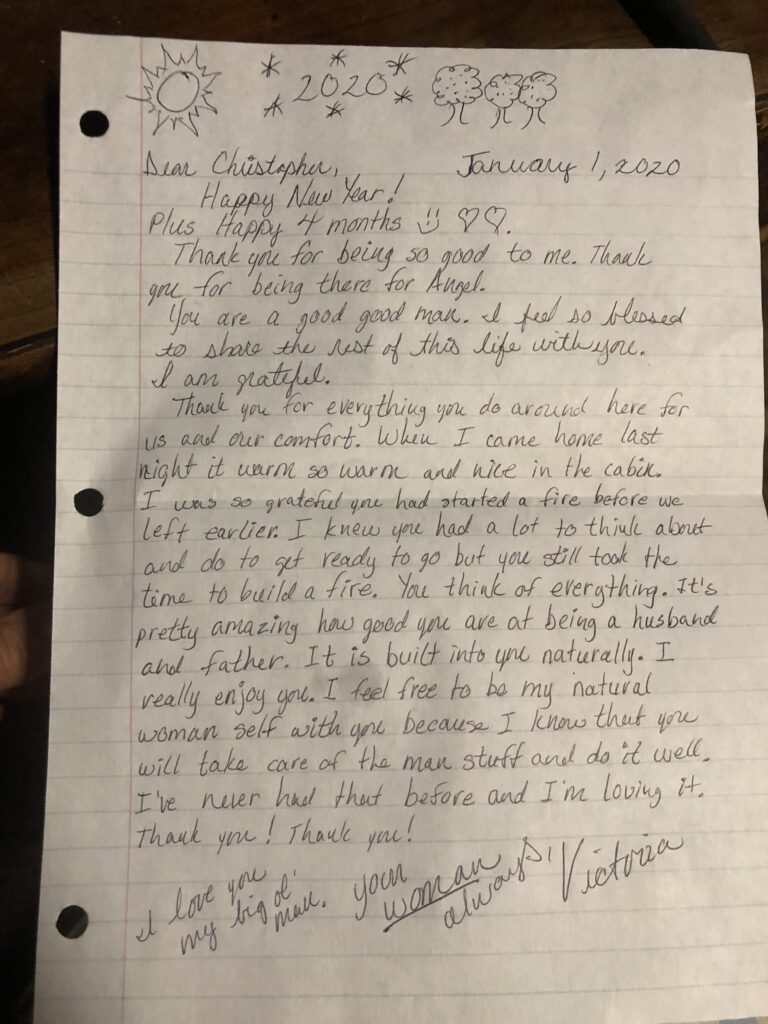 2020
Dear Christopher, January 1, 2020
Happy New Year!
Plus Happy 4 months
Thank you for being so good to me. Thank
you for being there for Angel.
You are a good good man. I feel so blessed
to share the rest of this life with you.
I am grateful.
Thank you for everything you do around here for
us and our comfort. When I came home last
night it warm so warm and nice in the cabin.
I was so grateful you had started a fire before we
left earlier. I knew you had a lot to think about
and do to get ready to go but you still took the
time to build a fire. You think of everything. It's
pretty amazing how good you are at being a husband
and father. It is built into you naturally. I
really enjoy you. I feel free to be my natural
woman self with you because I know that you
will take care of the man stuff and do it well.
I've never had that before and I'm loving it.
Thank you! Thank you!
I love you
my big ol'
man.
your
woman
always,
Victoria